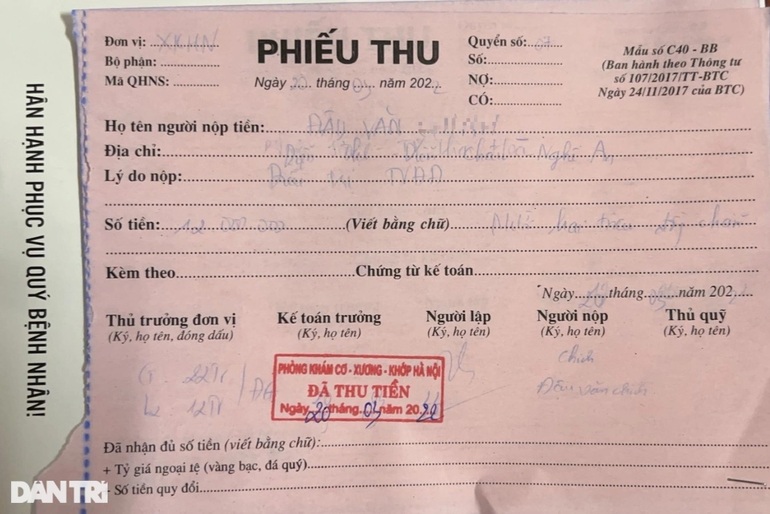 HÂN HẠNH PHỤC VỤ QUÝ BỆNH NHÂN!
Đơn vị: XKHN
Bộ phận:
Mã QHNS:
PHIẾU THU
Ngày 20 tháng 03 năm 202 2
Quyển số: 07
Số:
NỢ:
CÓ:
Mẫu số C40 - BB
(Ban hành theo Thông tư
số 107/2017/TT-BTC
Ngày 24/11/2017 của BTC)
Họ tên người nộp tiền: ĐẬU VĂN
Địa chỉ: Nghệ An
Lý do nộp:
Số tiền: 12 000 000 (Viết bằng chữ) hai triệu chẵn
Kèm theo Chứng từ kế toán
Ngày 20 tháng 03 năm 202
Thủ trưởng đơn vị
(Ký, họ tên, đóng dấu)
Kế toán trưởng
(Ký, họ tên)
Người lập
(Ký, họ tên)
Người nộp
(Ký, họ tên)
Thủ quỹ
(Ký, họ tên)
22Tr
12Tr
PHÒNG KHÁM CƠ - XƯƠNG - KHỚP HÀ NỘI
ĐÃ THU TIỀN
Ngày 20 tháng 03 năm 2022
Chích
Đậu văn chích
Đã nhận đủ số tiền (viết bằng chữ):
+ Tỷ giá ngoại tệ (vàng bạc, đá quý)
- Số tiền quy đổi
DÂN TRÍ